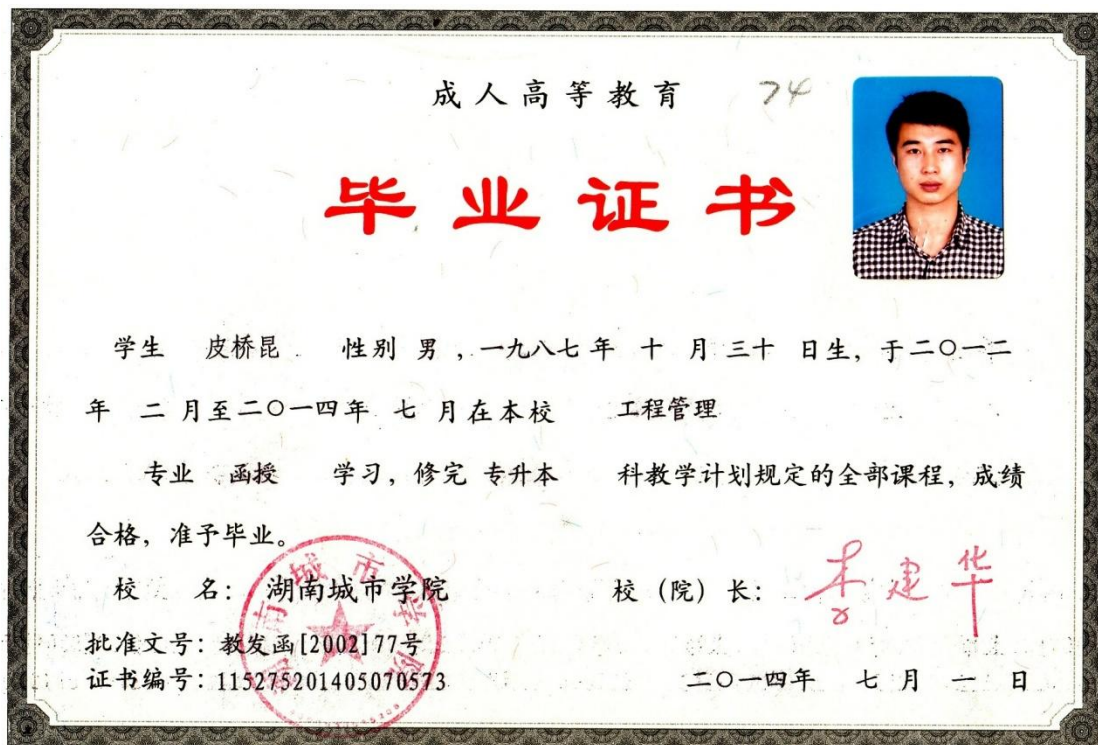 成人高等教育 74
毕业证书
学生 皮桥昆 性别 男 ，一九八七 年 十 月 三十 日生，于二〇一二
年 二 月至二〇一四年 七 月在本校 工程管理
专业 函授 学习，修完 专升本 科教学计划规定的全部课程，成绩
合格，准予毕业。
校 名：湖南城市学院 校（院）长：李建华
批准文号：教发函[2002]77号
证书编号：115275201405070573 二〇一四年 七 月 一 日
湖南城市学院